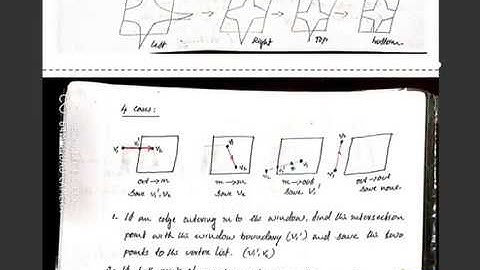 left Right Top bottom
4 cases:
V1 V1' V2 V1 V2 V1 V1' V2 V1 V2
out → in in → in in → out out → out
save V1', V2 save V2 save V1' save none.
1. If an edge entering in to the window, find the intersection
point with the window boundary (V1') and save the two
points to the vertex list. (V1', V2)